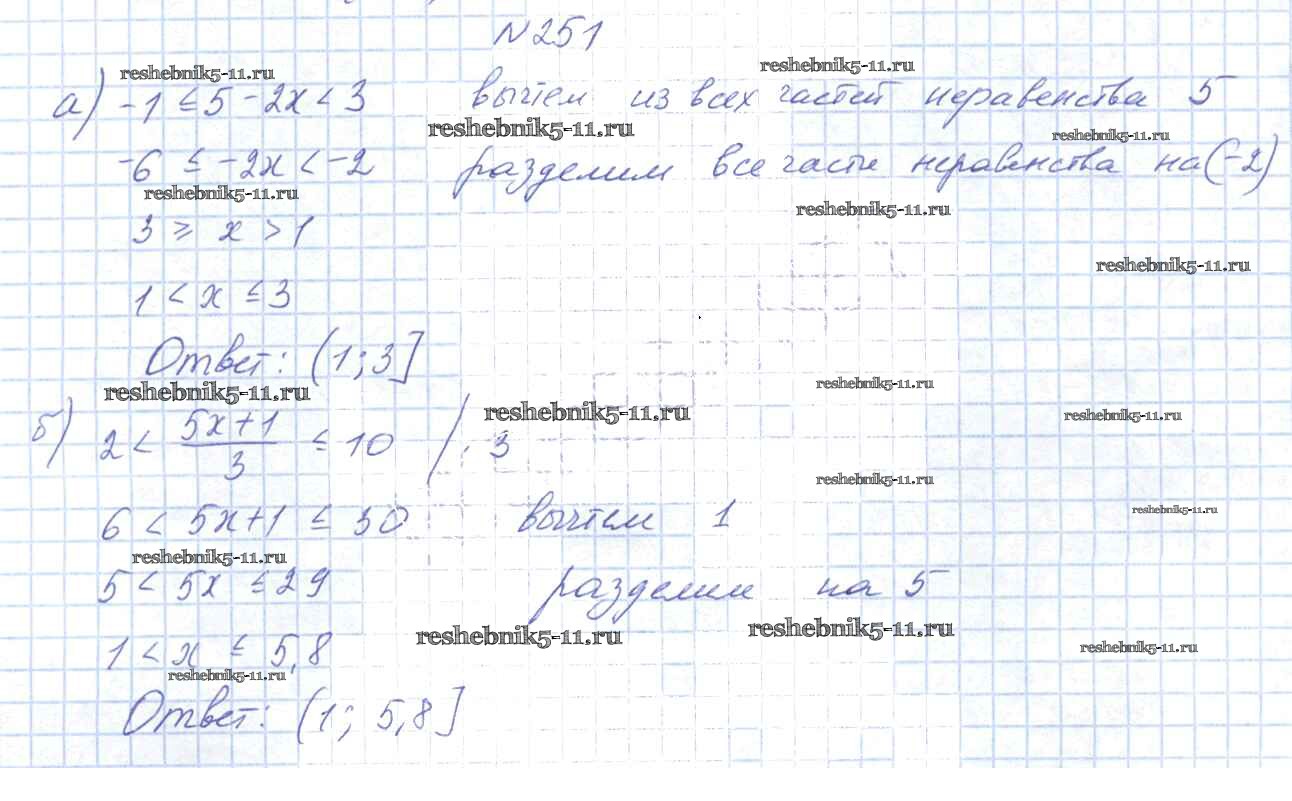 №251
reshebnik5-11.ru reshebnik5-11.ru
а) -1 ≤ 5 - 2x < 3 вычтем из всех частей неравенства 5
reshebnik5-11.ru reshebnik5-11.ru
-6 ≤ -2x < -2 разделим все части неравенства на (-2)
reshebnik5-11.ru reshebnik5-11.ru
3 ≥ x > 1
reshebnik5-11.ru
1 < x ≤ 3
Ответ: (1; 3]
reshebnik5-11.ru reshebnik5-11.ru reshebnik5-11.ru reshebnik5-11.ru
б) 2 < (5x+1)/3 ≤ 10 /· 3
reshebnik5-11.ru reshebnik5-11.ru
6 < 5x+1 ≤ 30 вычтем 1
reshebnik5-11.ru
5 < 5x ≤ 29 разделим на 5
reshebnik5-11.ru reshebnik5-11.ru reshebnik5-11.ru
1 < x ≤ 5,8
reshebnik5-11.ru
Ответ: (1; 5,8]